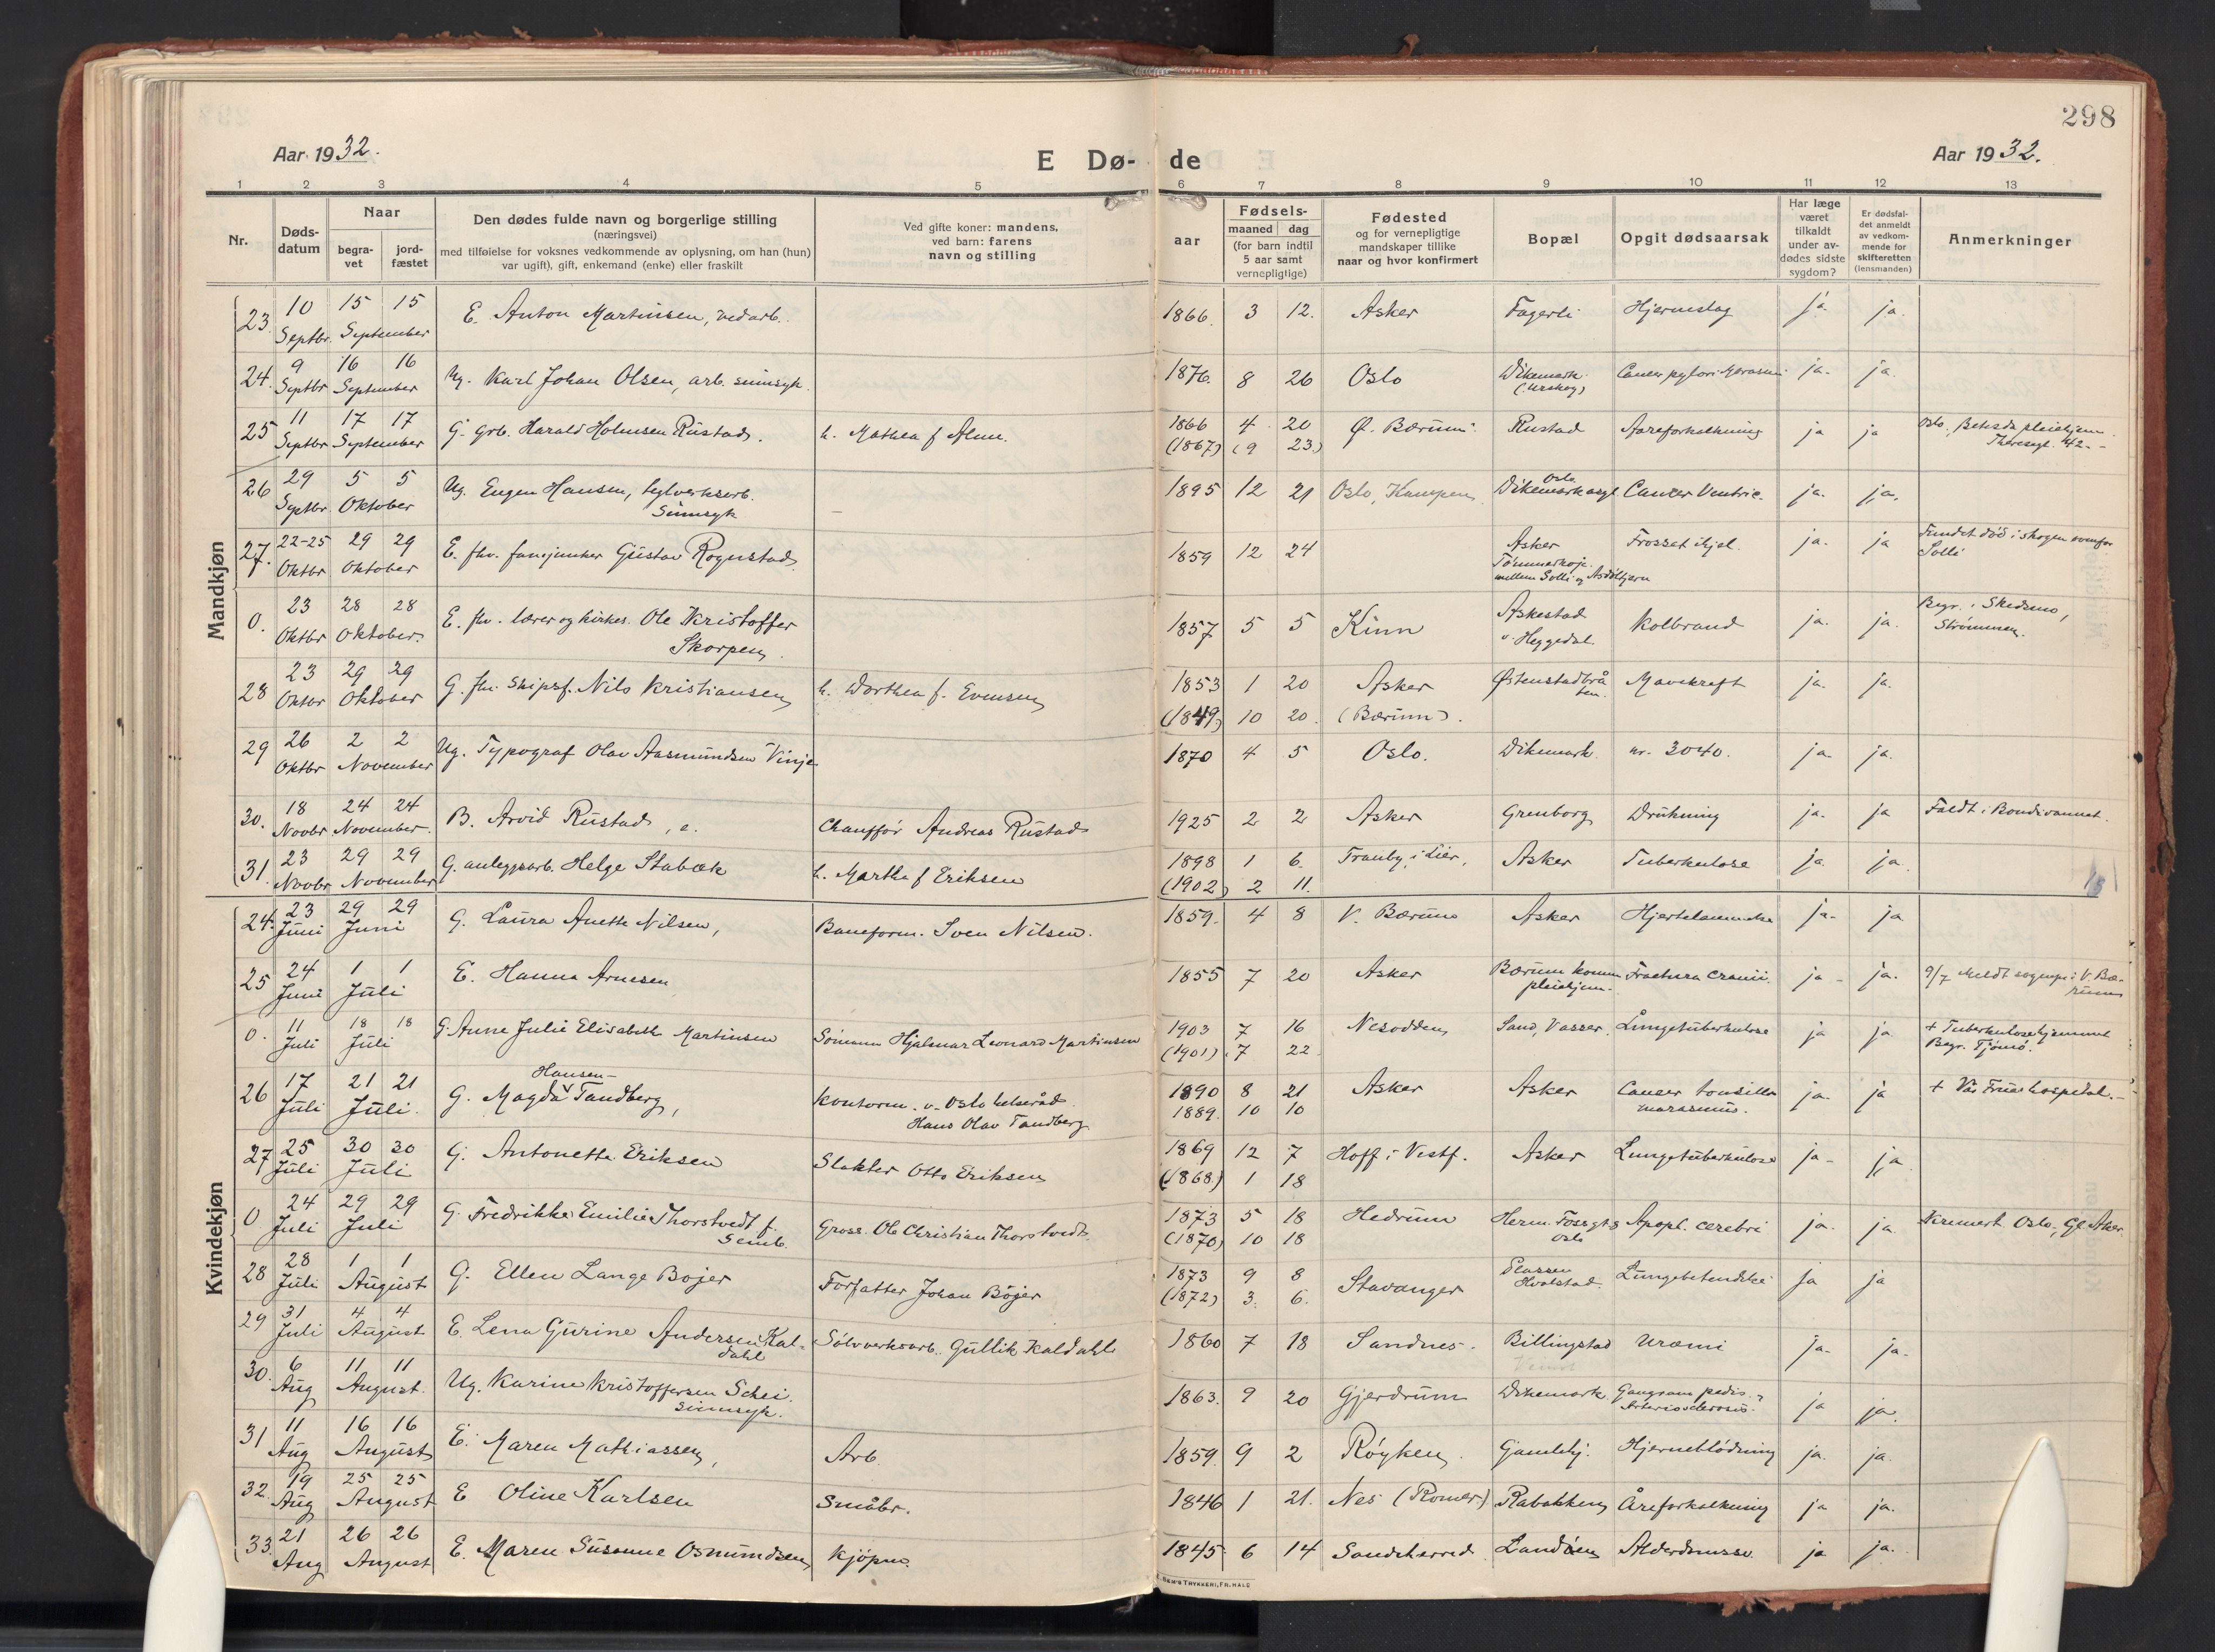 298
Aar 1932.
E Dø-
de
Aar 1932.
1 2 3 4 5 6 7 8 9 10 11 12 13
Nr.
Døds-
datum
Naar
begra-
vet
jord-
fæstet
Den dødes fulde navn og borgerlige stilling
(næringsvei)
med tilføielse for voksnes vedkommende av oplysning, om han (hun)
var ugift), gift, enkemand (enke) eller fraskilt
Ved gifte koner: mandens,
ved barn: farens
navn og stilling
aar
Fødsels-
maaned dag
(for barn indtil
5 aar samt
vernepligtige)
Fødested
og for vernepligtige
mandskaper tillike
naar og hvor konfirmert
Bopæl
Opgit dødsaarsak
Har læge
været
tilkaldt
under av-
dødes sidste
sygdom?
Er dødsfal-
det anmeldt
av vedkom-
mende for
skifteretten
(lensmanden)
Anmerkninger
Mandkjøn
23. 10 15 15 E. Anton Martinsen, vedarb. 1866. 3 12. Asker Fagerli Hjerneslag ja. ja.
Septbr. September
24. 9 16 16 Ug. Karl Johan Olsen, arb. sinnsyk. 1876. 8 26 Oslo Dikemark Cancer pylori Marasmus ja. ja.
Septbr September (Urskog)
25 11 17 17 G. grb. Harald Holmsen Rustad. h. Mathea f Alm. 1866 4 20 Ø. Bærum. Rustad Aareforkalkning ja ja Oslo, Betesda pleiehjem
Septbr September (1867) (9 23.) Theresesgt. 42.-
26 29 5 5 Ug. Eugen Hansen, teglverksarb. 1895 12 21 Oslo, Kampen Oslo Dikemark asyl Cancer Ventric. ja. ja.
Septbr Oktober Sinnsyk
27. 22-25 29 29 E. fhv. fanejunker Gustav Rognstad. 1859 12 24 Asker Frosset ihjel. ja. ja Fundet død i skogen ovenfor
Oktbr Oktober Tømmerkoje Solli
mellem Solli og Asdøltjern
0. 23 28 28 E. fhv. lærer og kirkes. Ole Kristoffer 1857 5 5 Kinn Askestad Kolbrand ja. ja. Begr. i Skedsmo,
Oktbr Oktober Skorpen. v. Heggedal Strømmen.
28 23 29 29 G. fhv. Skipsf. Nils Kristiansen h. Dorthea f. Evensen 1853 1 20 Asker Østenstadbrå Mavekreft ja. ja.
Oktbr Oktober (1849) 10 20. (Bærum). ten.
29 26 2 2 Ug. Typograf Olav Aasmundsen Vinje 1870 4 5 Oslo. Dikemark nr. 3040. ja. ja.
Oktbr November
30. 18 24 24 B. Arvid Rustad, e. Chauffør Andreas Rustad 1925 2 2 Asker Grenborg Drukning ja. ja Faldt i Bondivannet.
Novbr November.
31. 23 29 29 G. anleggsarb. Helge Stabæk h. Martha f Eriksen 1898 1 6. Tranby, i Lier. Asker Tuberkulose ja. ja.
Novbr November (1902) 2 11. 15
Kvindekjøn
24. 23 29 29 G. Laura Anette Nilsen, Baneform. Sven Nilsen. 1859. 4 8 V. Bærum Asker Hjertelammelse ja. ja
Juni Juni
25 24 1 1 E. Hanna Arnesen 1855 7 20 Asker Bærum komm Fractura cranii. ja - ja. 9/7 Meldt sognepr. i V. Bæ-
Juni Juli pleiehjem. rum
0. 11 18 18 G. Anne Julie Elisabeth Martinsen Sømann Hjalmar Leonard Martinsen 1903 7 16 Nesodden Sand, Vasser. Lungetuberkulose ja ja + Tuberkulosehjemmet
Juli Juli (1901) 7 22 Begr. Tjømø.
26 17 21 21 G. Magda Hansen- Tandberg, kontorm. v. Oslo helseråd 1890 8 21 Asker Asker Cancer tonsille ja. ja + Vår Frues hospital.-
Juli Juli. Hans Olav Tandberg 1889. 10 10 marasmus.
27 25 30 30 G. Antonette Eriksen Slakter Otto Eriksen 1869 12 7 Hoff i Vestf. Asker Lungetuberkulose ja - ja
Juli Juli (1868) 1 18
0 24 29 29 G. Fredrikke Emilie Thorstvedt f. Gross. Ole Christian Thorstvedt. 1873 5 18 Hedrum Herm. Fossgt 8 Apopl. cerebri ja. ja. Kremert Oslo, Gl. Aker
Juli Juli Semb. (1870) 10 18 Oslo
28 28 1 1 G. Ellen Lange Bojer Forfatter Johan Bojer 1873 9 8 Stavanger Plassen Lungebetendelse ja ja
Juli August (1872) 3. 6. Hvalstad.
29 31 4 4 E. Lena Gurine Andersen Kal- Sølvverksarb. Gullik Kaldahl 1860 7 18 Sandnes. Billingstad Uræmi ja. ja.
Juli August dahl
30. 6 11 11 Ug. Karine Kristoffersen Schei. 1863. 9 20 Gjerdrum Dikemark. Gangræn pedis. ja ja.
Aug August. sinnsyk. Arteriosclerosis.
31 11 16 16 E. Maren Mathiassen, Arb. 1859. 9 2 Røyken. Gamlehj. Hjerneblødning ja. ja.
Aug August
32. 19 25 25 E Oline Karlsen Småbr. 1846 1 21. Nes (Romer.) Rabakken Åreforkalkning ja ja.
Aug August
33. 21 26 26 E. Maren Susanne Osmundsen Kjøpm. 1845. 6 14 Sandeherred Landøen Alderdomssv. ja ja.
Aug August